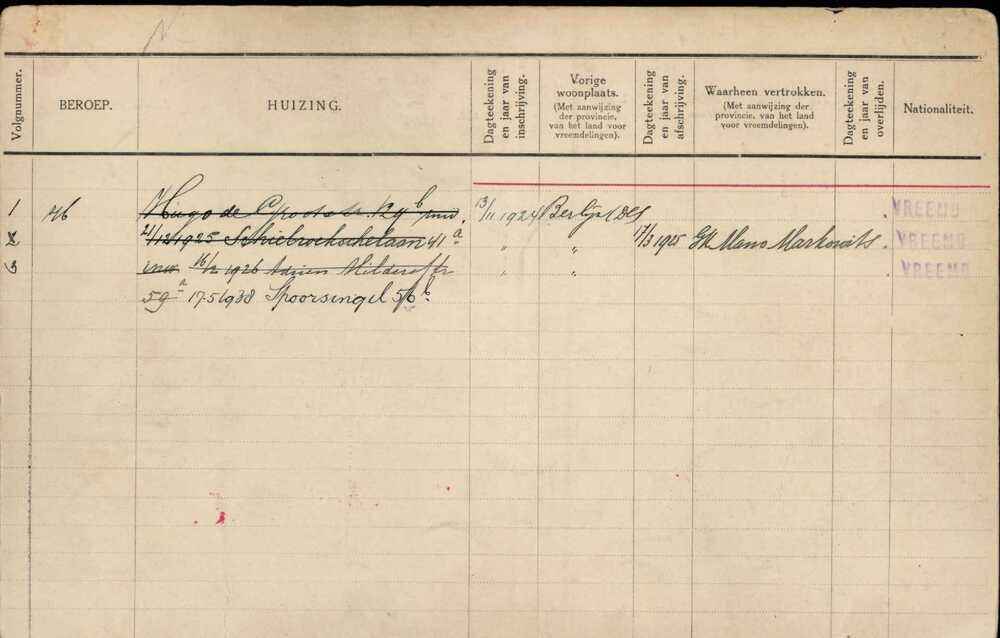 Volgnummer.
BEROEP.
HUIZING.
Dagteekening en jaar van inschrijving.
Vorige woonplaats.
(Met aanwijzing der provincie, van het land voor vreemdelingen).
Dagteekening en jaar van afschrijving.
Waarheen vertrokken.
(Met aanwijzing der provincie, van het land voor vreemdelingen).
Dagteekening en jaar van overlijden.
Nationaliteit.
1 Hugo de Grootstr. 124 b inw. 13/11 1924 Berlijn VREEMD
2 21/12 1925 Schiebroekschelaan 41 a " " 17/3 1925 Gk Mano Markovits VREEMD
3 inw 16/2 1926 Adrien Mildersstr " " VREEMD
59 a 17-5-1938 Spoorsingel 56 b.